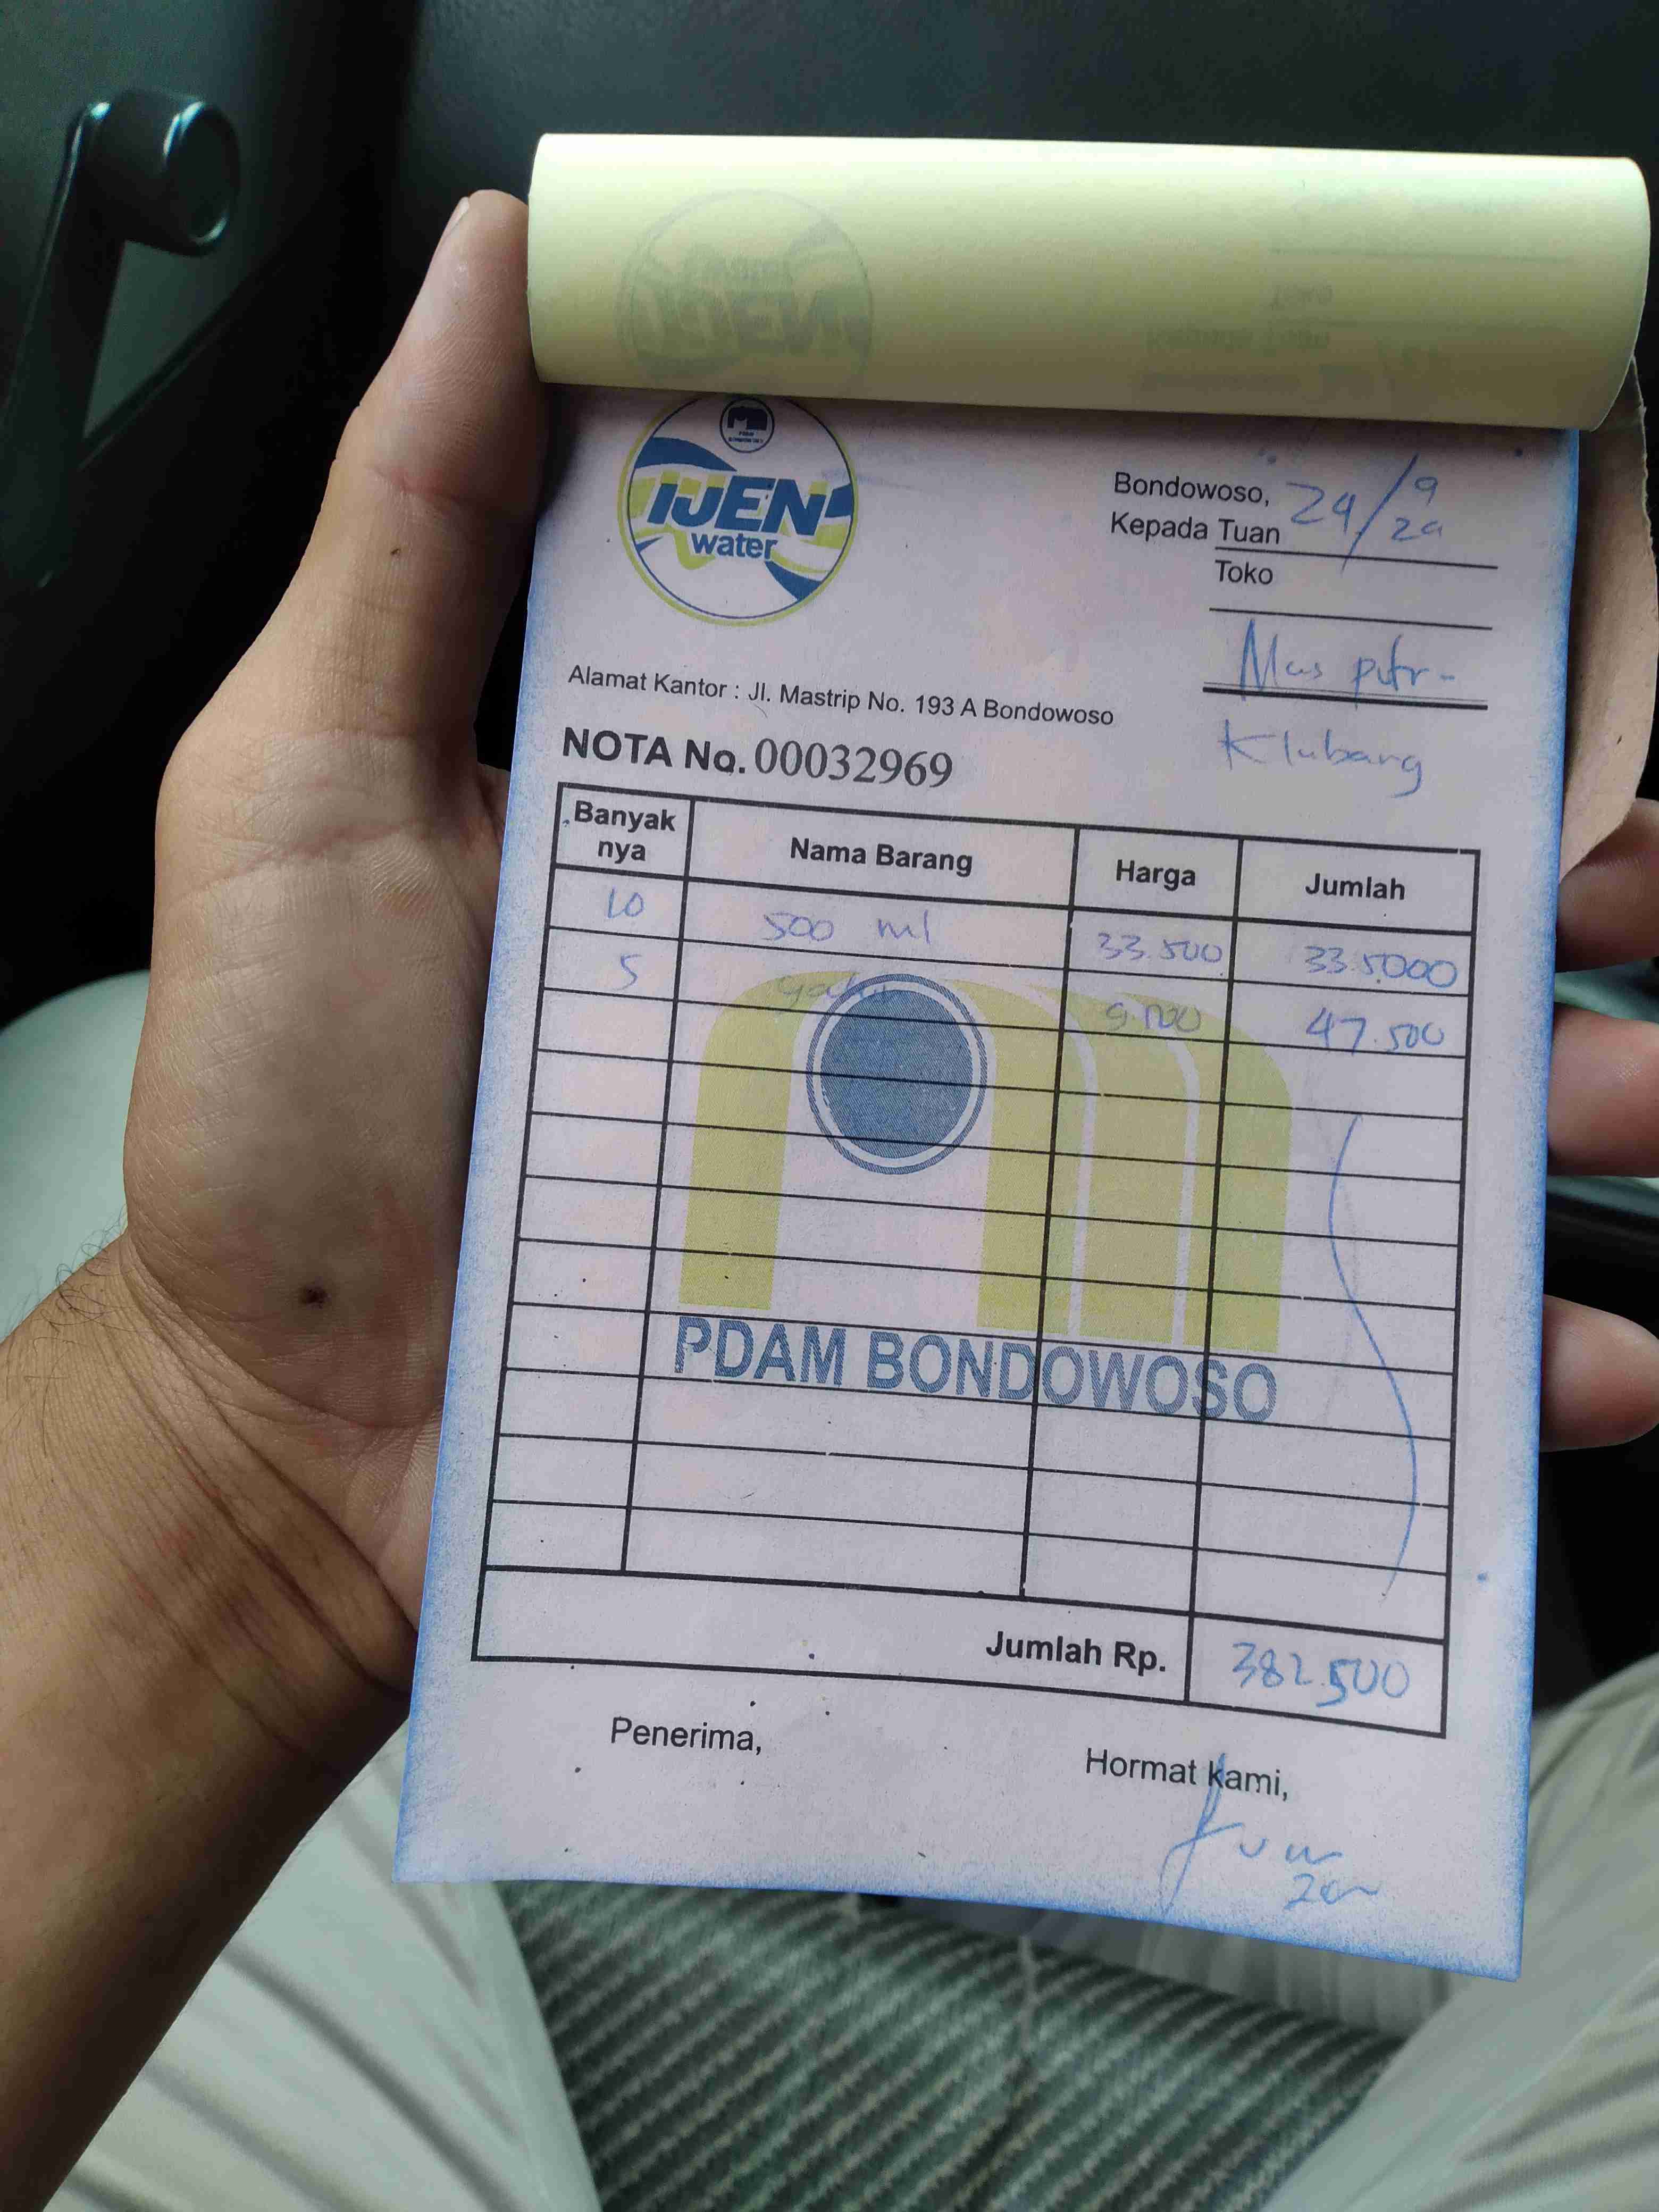 IJEN
water
Bondowoso, 24/9
Kepada Tuan
Toko
Mas putr-
Klabang
Alamat Kantor : Jl. Mastrip No. 193 A Bondowoso
NOTA No. 00032969
Banyak nya Nama Barang Harga Jumlah
10 500 ml 33.500 33.5000
5 47.500
PDAM BONDOWOSO
Jumlah Rp. 382.500
Penerima,
Hormat kami,